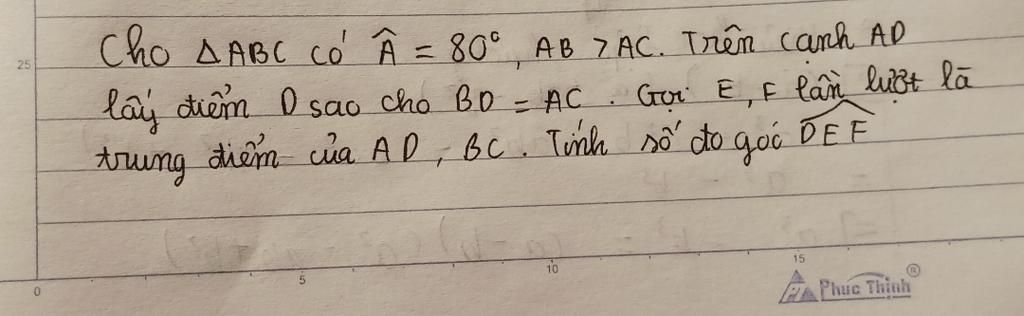 Cho △ABC có Â = 80°, AB > AC. Trên cạnh AD
lấy điểm D sao cho BD = AC. Gọi E, F lần lượt là
trung điểm của AD, BC. Tính số đo góc DEF
25
0
5
10
15
Phuc Thinh®